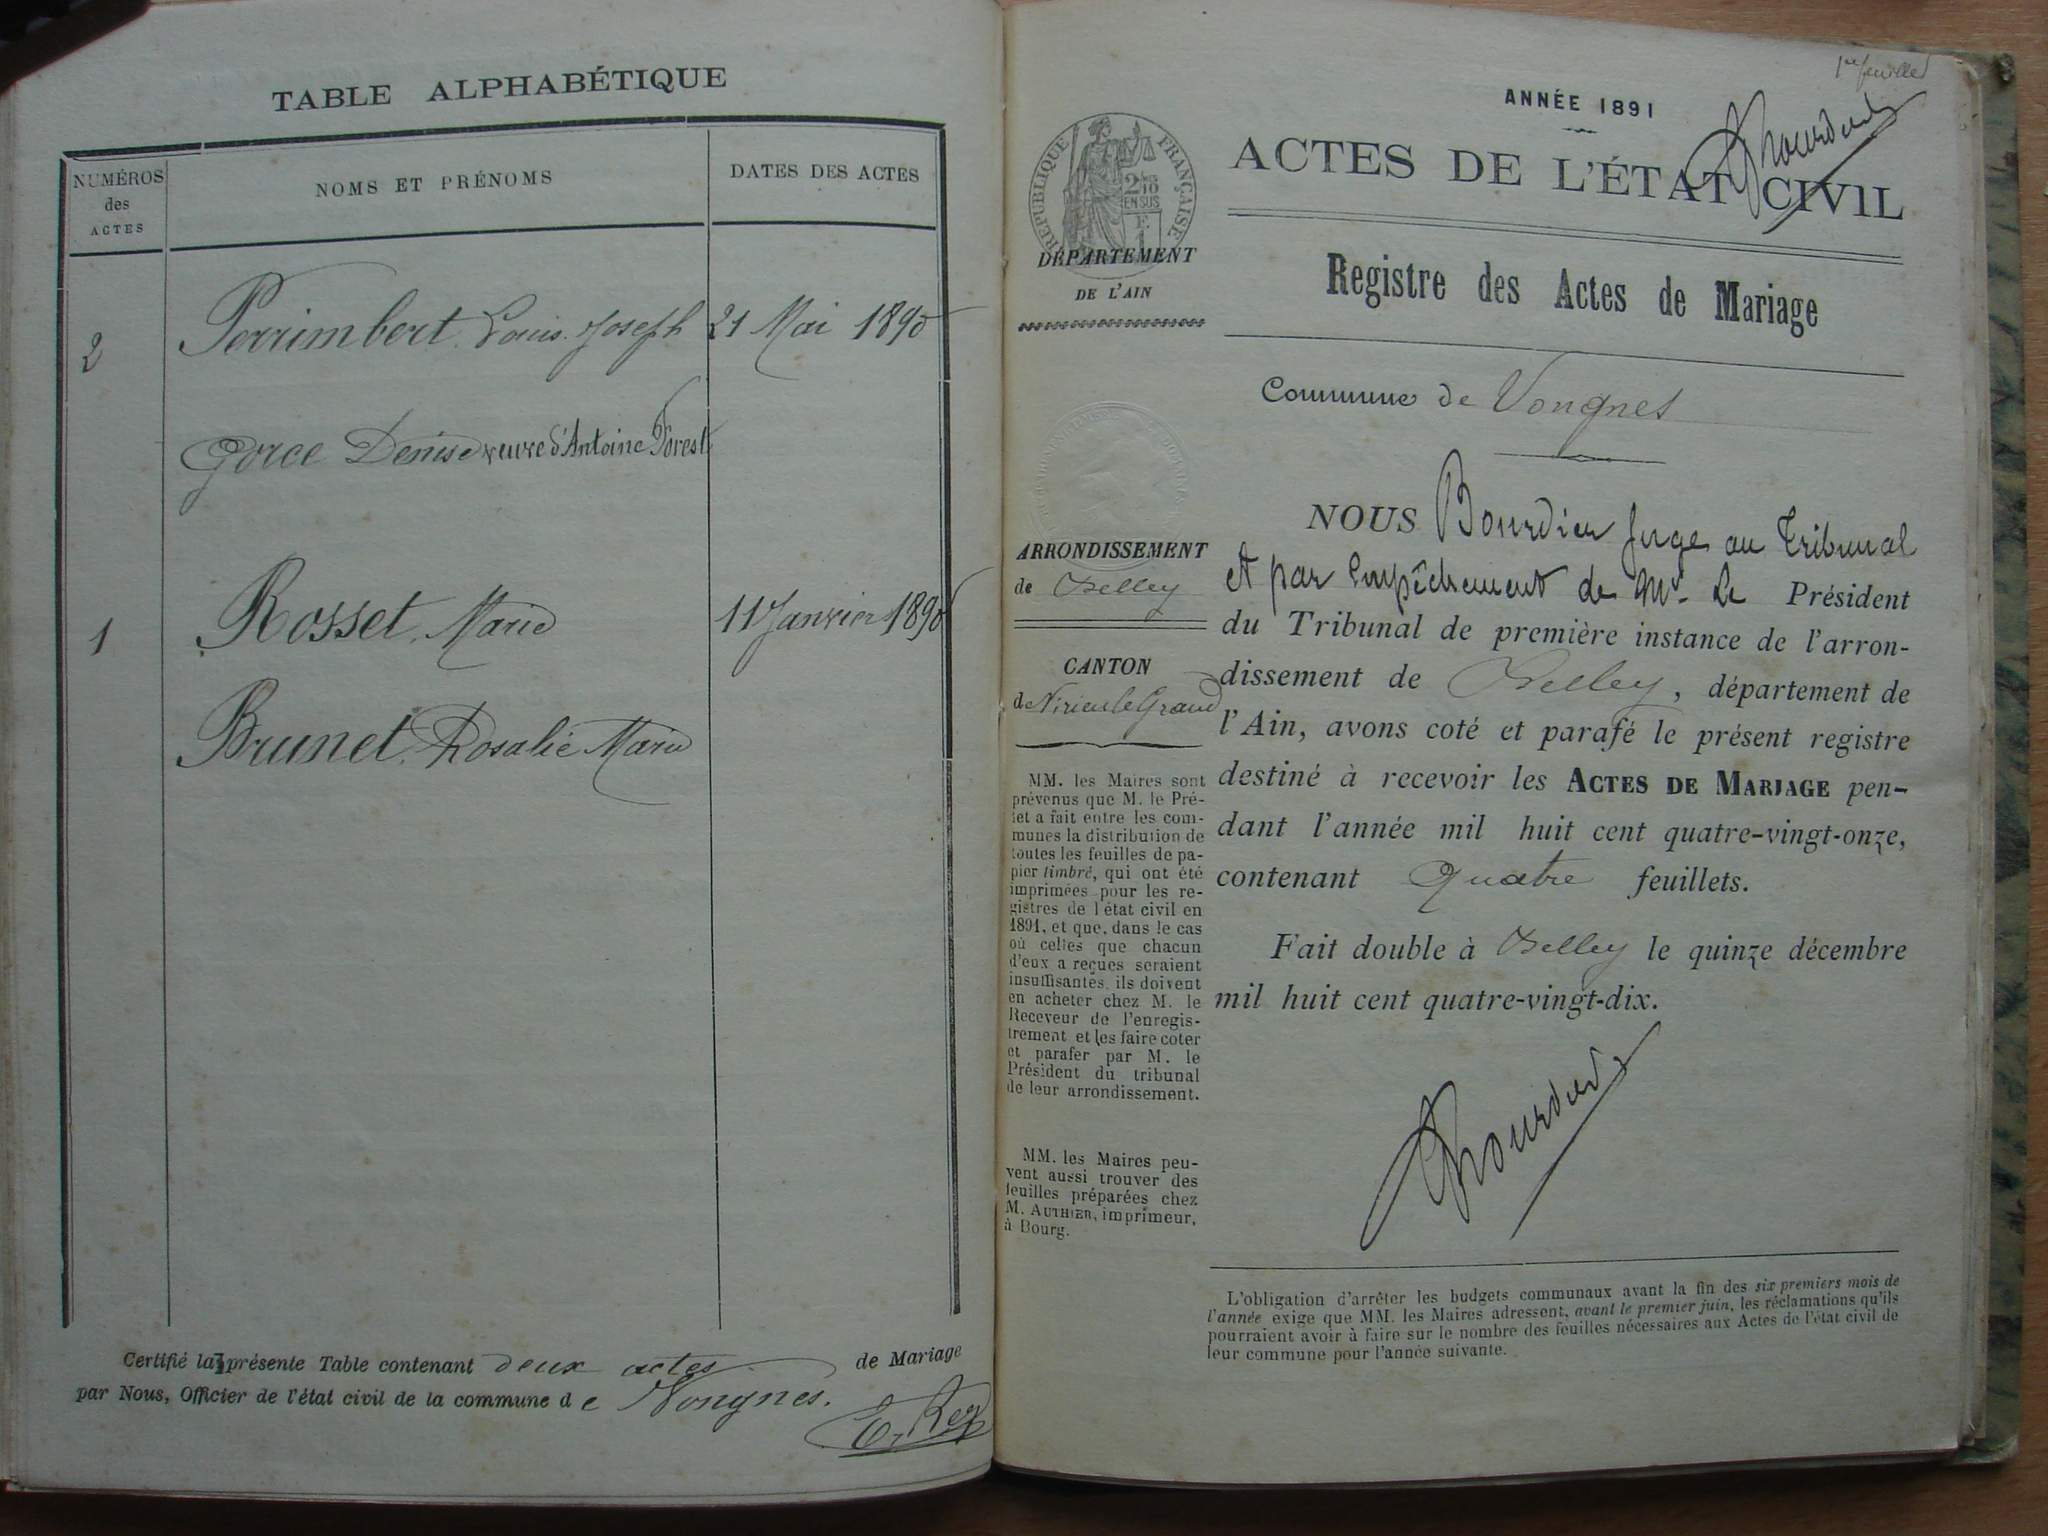 TABLE ALPHABÉTIQUE
NUMÉROS
des
ACTES
NOMS ET PRÉNOMS
DATES DES ACTES
2 Perrimbert Louis Joseph 21 Mai 1890
Gorce Denise veuve d'Antoine Forest
1 Rosset, Marie 11 Janvier 1890
Brunet, Rosalie Marie
Certifié la présente Table contenant deux actes de Mariage
par Nous, Officier de l'état civil de la commune de Vongnes.
1re feuille
ANNÉE 1891
ACTES DE L'ÉTAT CIVIL
RÉPUBLIQUE FRANÇAISE
2/10
EN SUS
DÉPARTEMENT
DE L'AIN
Registre des Actes de Mariage
Commune de Vongnes
ARRONDISSEMENT
de Belley
CANTON
de Virieu le Grand
MM. les Maires sont
prévenus que M. le Pré-
fet a fait entre les com-
munes la distribution de
toutes les feuilles de pa-
pier timbré, qui ont été
imprimées pour les re-
gistres de l'état civil en
1891, et que, dans le cas
où celles que chacun
d'eux a reçues seraient
insuffisantes, ils doivent
en acheter chez M. le
Receveur de l'enregis-
trement et les faire coter
et parafer par M. le
Président du tribunal
de leur arrondissement.
MM. les Maires peu-
vent aussi trouver des
feuilles préparées chez
M. AUTHIER, imprimeur,
à Bourg.
NOUS Bourdier Juge au Tribunal
et par Empêchement de Mr. Le Président
du Tribunal de première instance de l'arron-
dissement de Belley, département de
l'Ain, avons coté et parafé le présent registre
destiné à recevoir les ACTES DE MARIAGE pen-
dant l'année mil huit cent quatre-vingt-onze,
contenant Quatre feuillets.
Fait double à Belley le quinze décembre
mil huit cent quatre-vingt-dix.
L'obligation d'arrêter les budgets communaux avant la fin des six premiers mois de
l'année exige que MM. les Maires adressent, avant le premier juin, les réclamations qu'ils
pourraient avoir à faire sur le nombre des feuilles nécessaires aux Actes de l'état civil de
leur commune pour l'année suivante.